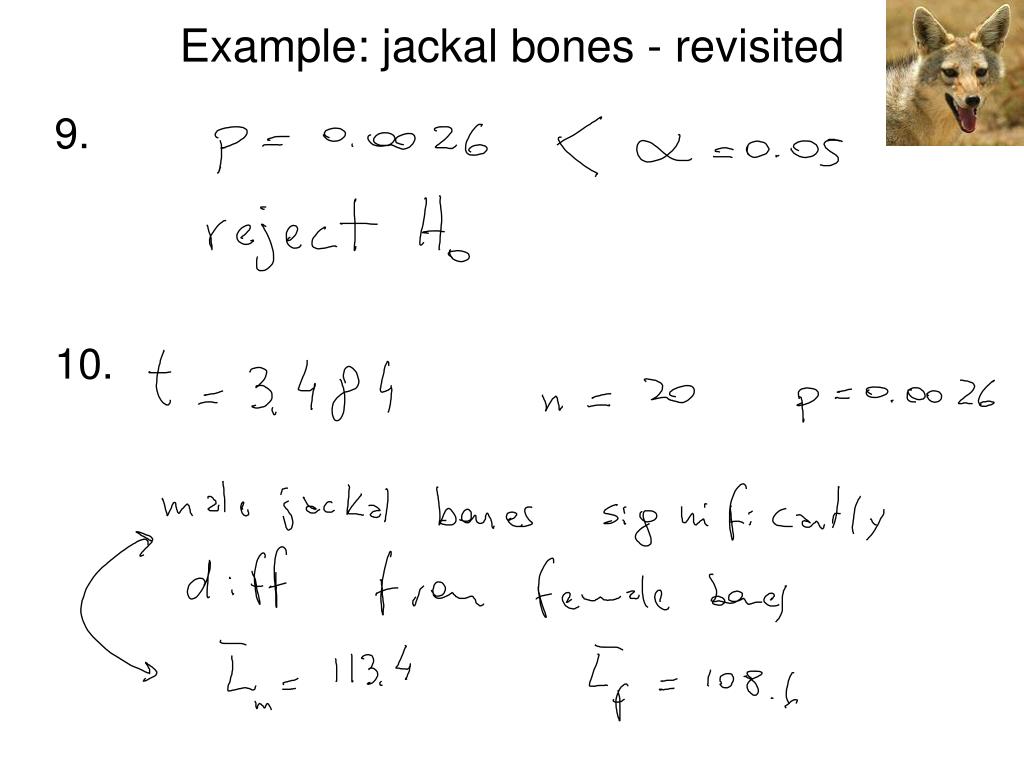 Example: jackal bones - revisited
9. p = 0.0026 < α = 0.05
reject H₀
10. t = 3.484 n = 20 p = 0.0026
male jackal bones significantly
diff from female bones
L̄m = 113.4 L̄f = 108.6